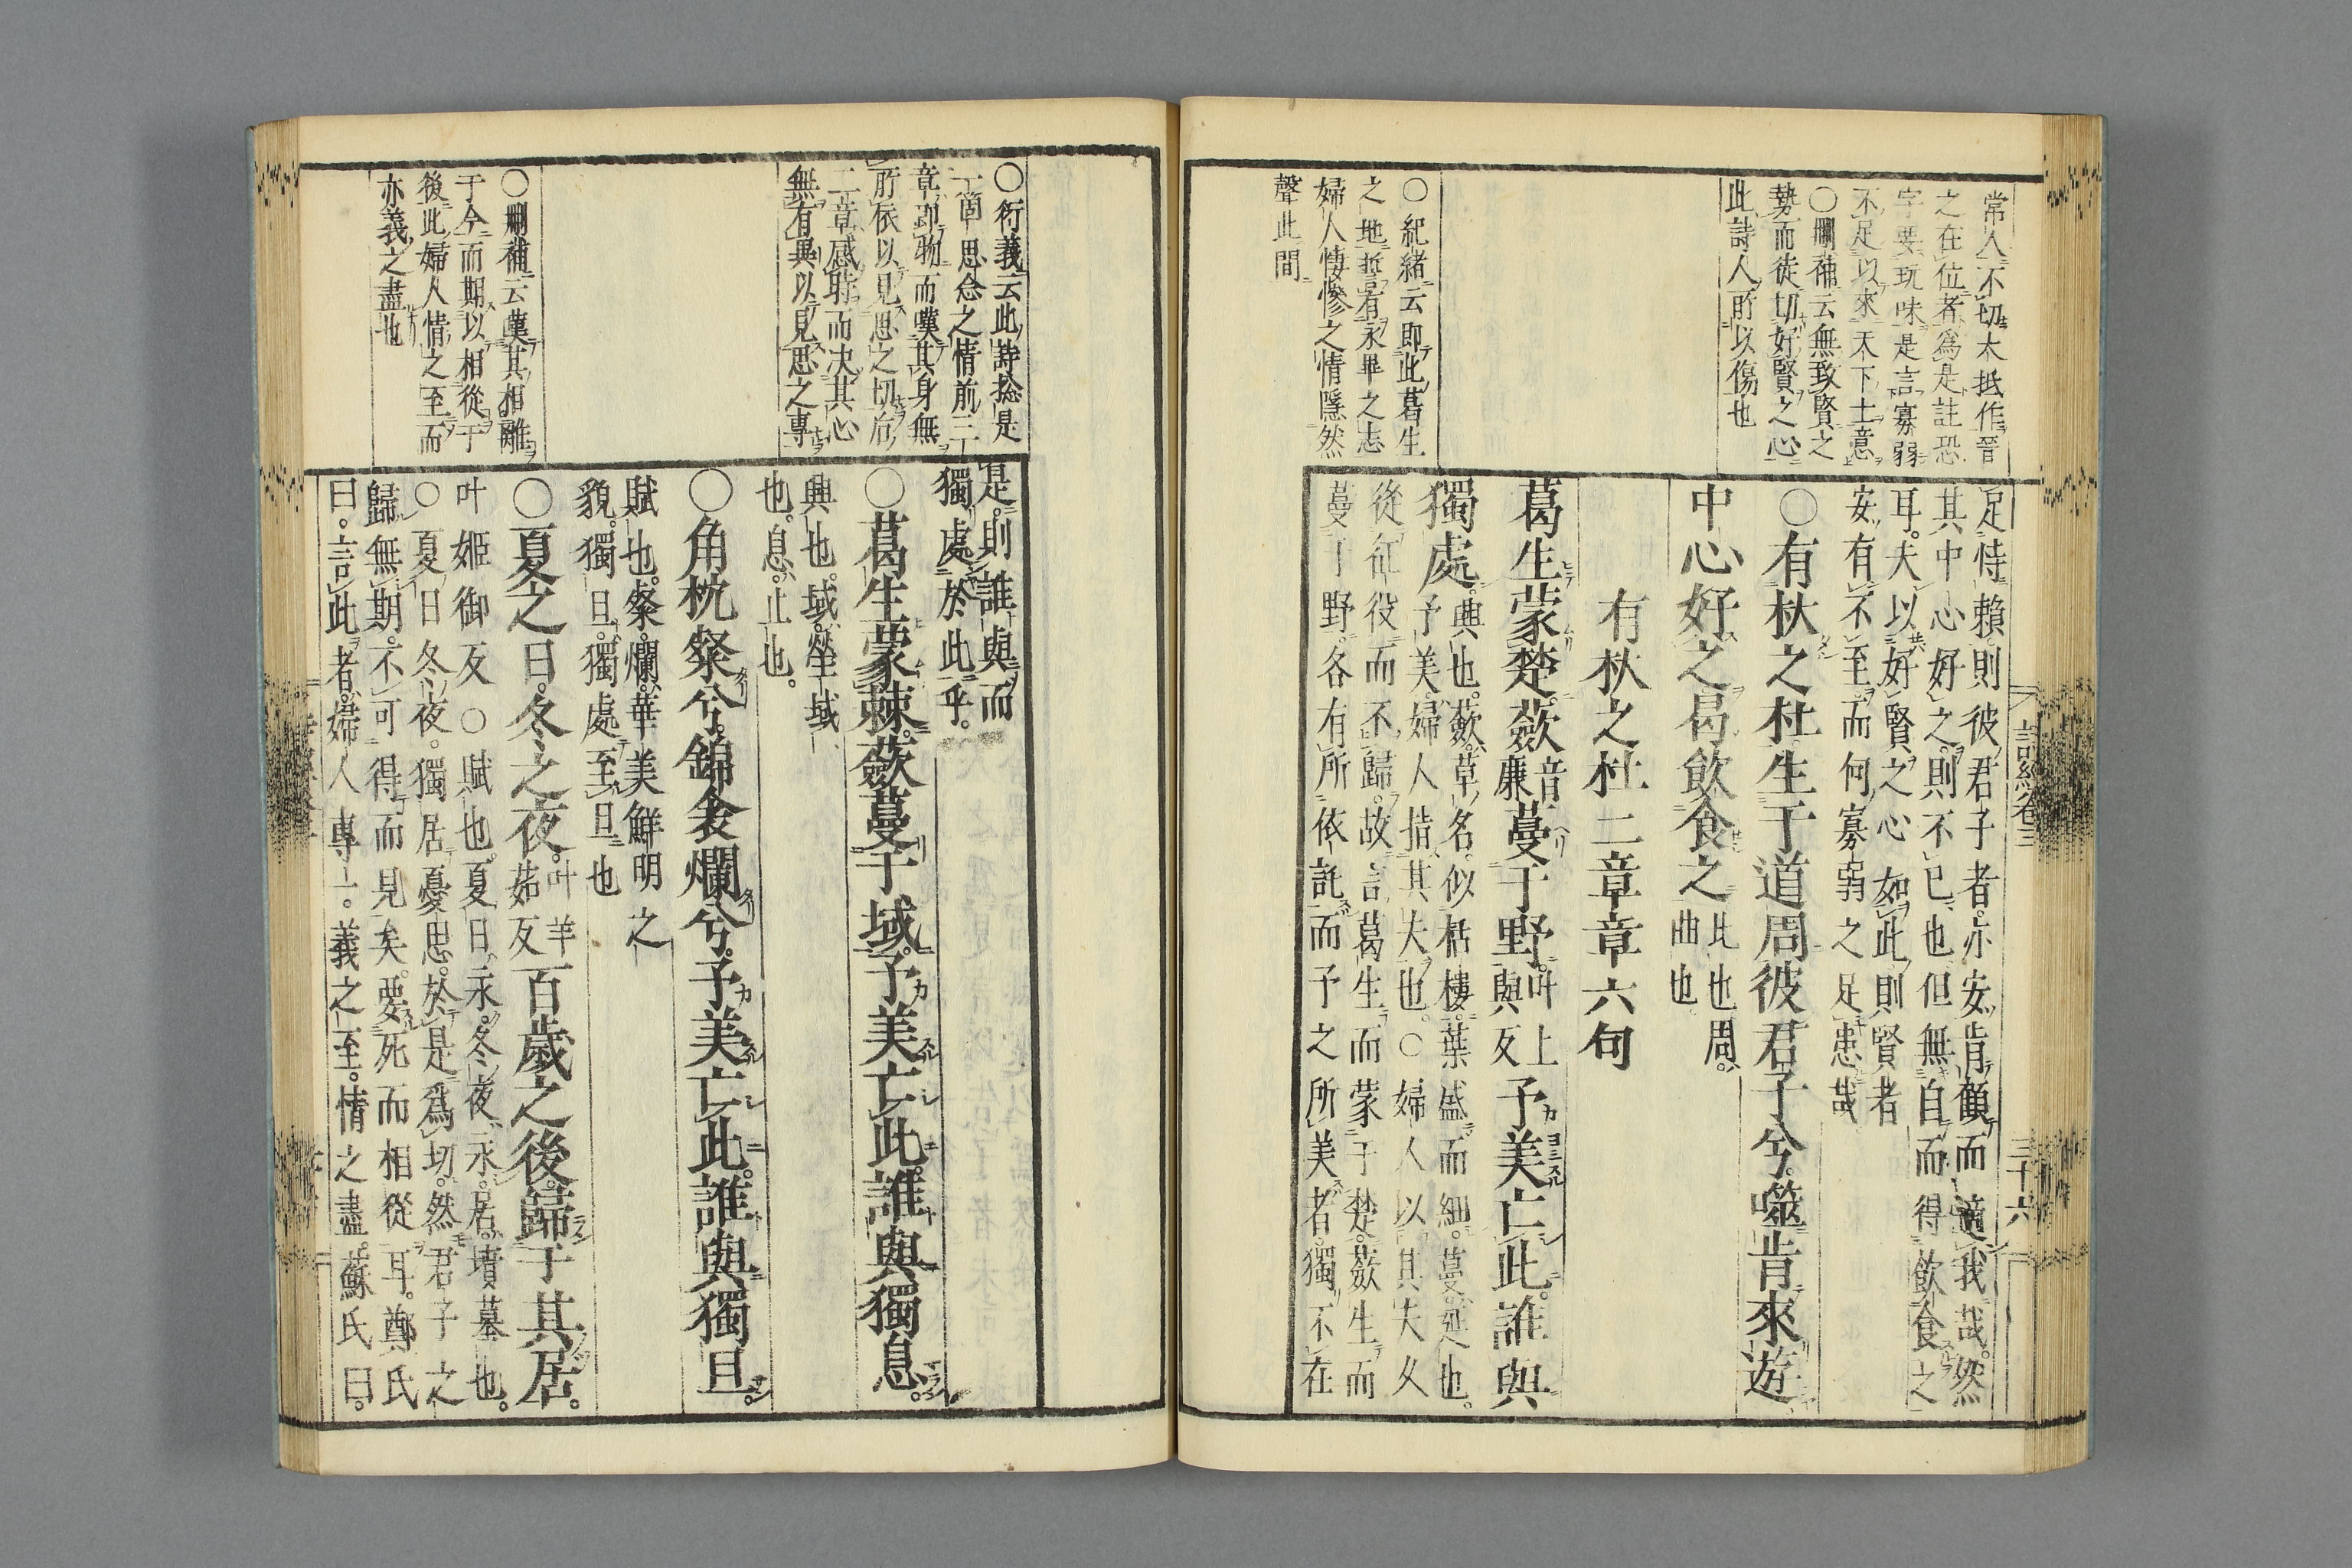 常人不切大抵作晉
之在位者爲是註恐
字要玩味是言寡弱
不足以來天下士意
○刪補云無致賢之
勢而徒切好賢之心
此詩人所以傷也
○紀緒云即此葛生
之地哲有永畢之志
婦人悽慘之情隱然
聲此間
詩經卷三
三十六
足恃賴則彼君子者亦安肯顧而適我哉。然
其中心好之。則不已也但無自而得飲食之
耳。夫以好賢之心如此則賢者
安有不至而何寡弱之足患哉
○有杕之杜生于道周彼君子兮。噬肯來遊
中心好之曷飲食之 比也周。曲也
有杕之杜二章章六句
葛生蒙楚。蘞音廉蔓于野。叶上與反予美亡此。誰與
獨處。興也。蘞。草名。似栝樓。葉盛而細。蔓延也。
予美。婦人指其夫也。○婦人以其夫久
從征役而不歸。故言葛生而蒙于楚。蘞生而
蔓于野。各有所依託。而予之所美者。獨不在
○衍義云此詩捴是
一箇思念之情前三
章即物而嘆其身無
所依以見思之切後
二章感時而決其心
無有異以見思之專
○刪補云嘆其相離
于今而期以相從于
後此婦人情之至而
亦義之盡也
是。則誰與而
獨處於此乎。
○葛生蒙棘。蘞蔓于域。予美亡此。誰與獨息。
興也。域。塋域
也。息。止也。
○角枕粲兮。錦衾爛兮。予美亡此。誰與獨旦。
賦也。粲。爛。華美鮮明之
貌。獨旦。獨處至旦也
○夏之日。冬之夜。叶羊茹反百歲之後。歸于其居。
叶姬御反○賦也。夏日永。冬夜永。居。墳墓也。
○夏日冬夜。獨居憂思。於是爲切。然君子之
歸無期。不可得而見矣。要死而相從耳。鄭氏
曰。言此者。婦人專一。義之至。情之盡。蘇氏曰。